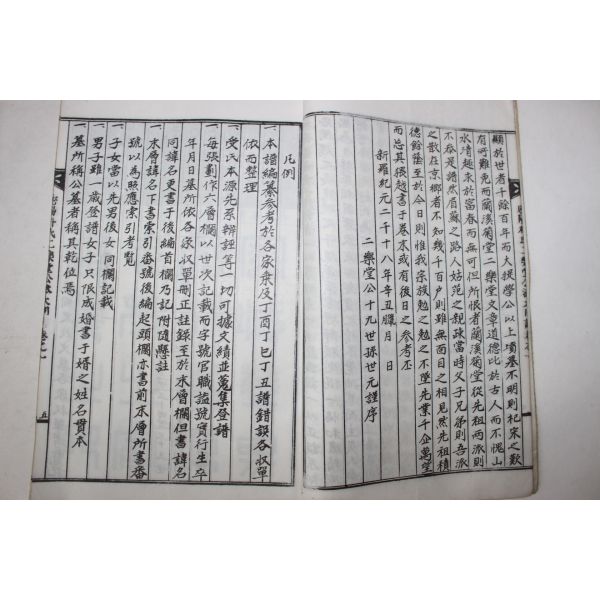 顯於世者千餘百年而大提學公以上墳墓不明則杞宋之歎
有所難免而蘭溪菊堂二樂堂文章道德比於古人而不愧山
水淸趣末於富春而無可但所恨者蘭溪菊堂從先祖兩派則
不吞是譜然眉蘇之路人姑免之親疎當時父子兄弟則吾派
之散在京鄕者不知幾千百戶則雖無面目之相見然先祖積
德餘蔭至於今日則惟我宗族勉之勉之不墜先業千企萬望
而忘其張趙書于卷末或有後日之參考否
新羅紀元二千十八年辛丑臘月 日
二樂堂公十九世孫世元謹序
凡例
一 本譜編纂參考於各家乘及丁酉丁巳丁丑譜錯誤各收單
依而整理
一 受氏本源先系辨証等一切可據文績並蒐集登譜
一 每張劃作六層欄以世次記載而字號官職諡號實行生卒
年月日墓所依各家收單刪正註錄至於末層欄但書諱名
同諱名更書于後編首欄乃記附隨懸註
一 末層諱名下書索引番號後編起頭欄亦書前末層所書番
號以爲照應索引考覽
一 子女當以先男後女同欄記載
一 男子雖一歲登譜女子只俟成婚書子婿之姓名貫本
一 墓所稱公墓者稱其乾位焉
五